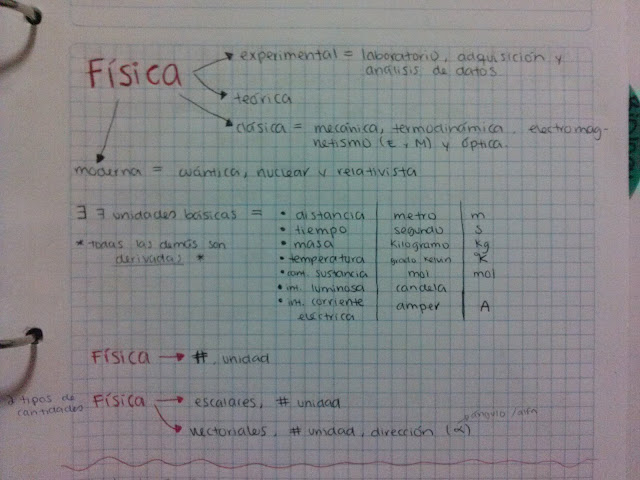 Física
experimental = laboratorio, adquisición y
análisis de datos.
teórica
clásica = mecánica, termodinámica. electromag-
netismo (E y M) y óptica.
moderna = cuántica, nuclear y relativista
∃ 7 unidades básicas =
* todas las demás son
derivadas *
• distancia | metro | m
• tiempo | segundo | s
• masa | kilogramo | kg
• temperatura | grado Kelvin | K
• cant. sustancia | mol | mol
• int. luminosa | candela
• int. corriente | amper | A
eléctrica
Física → #, unidad
2 tipos de
cantidades
Física → escalares, # unidad
vectoriales, # unidad, dirección (α)